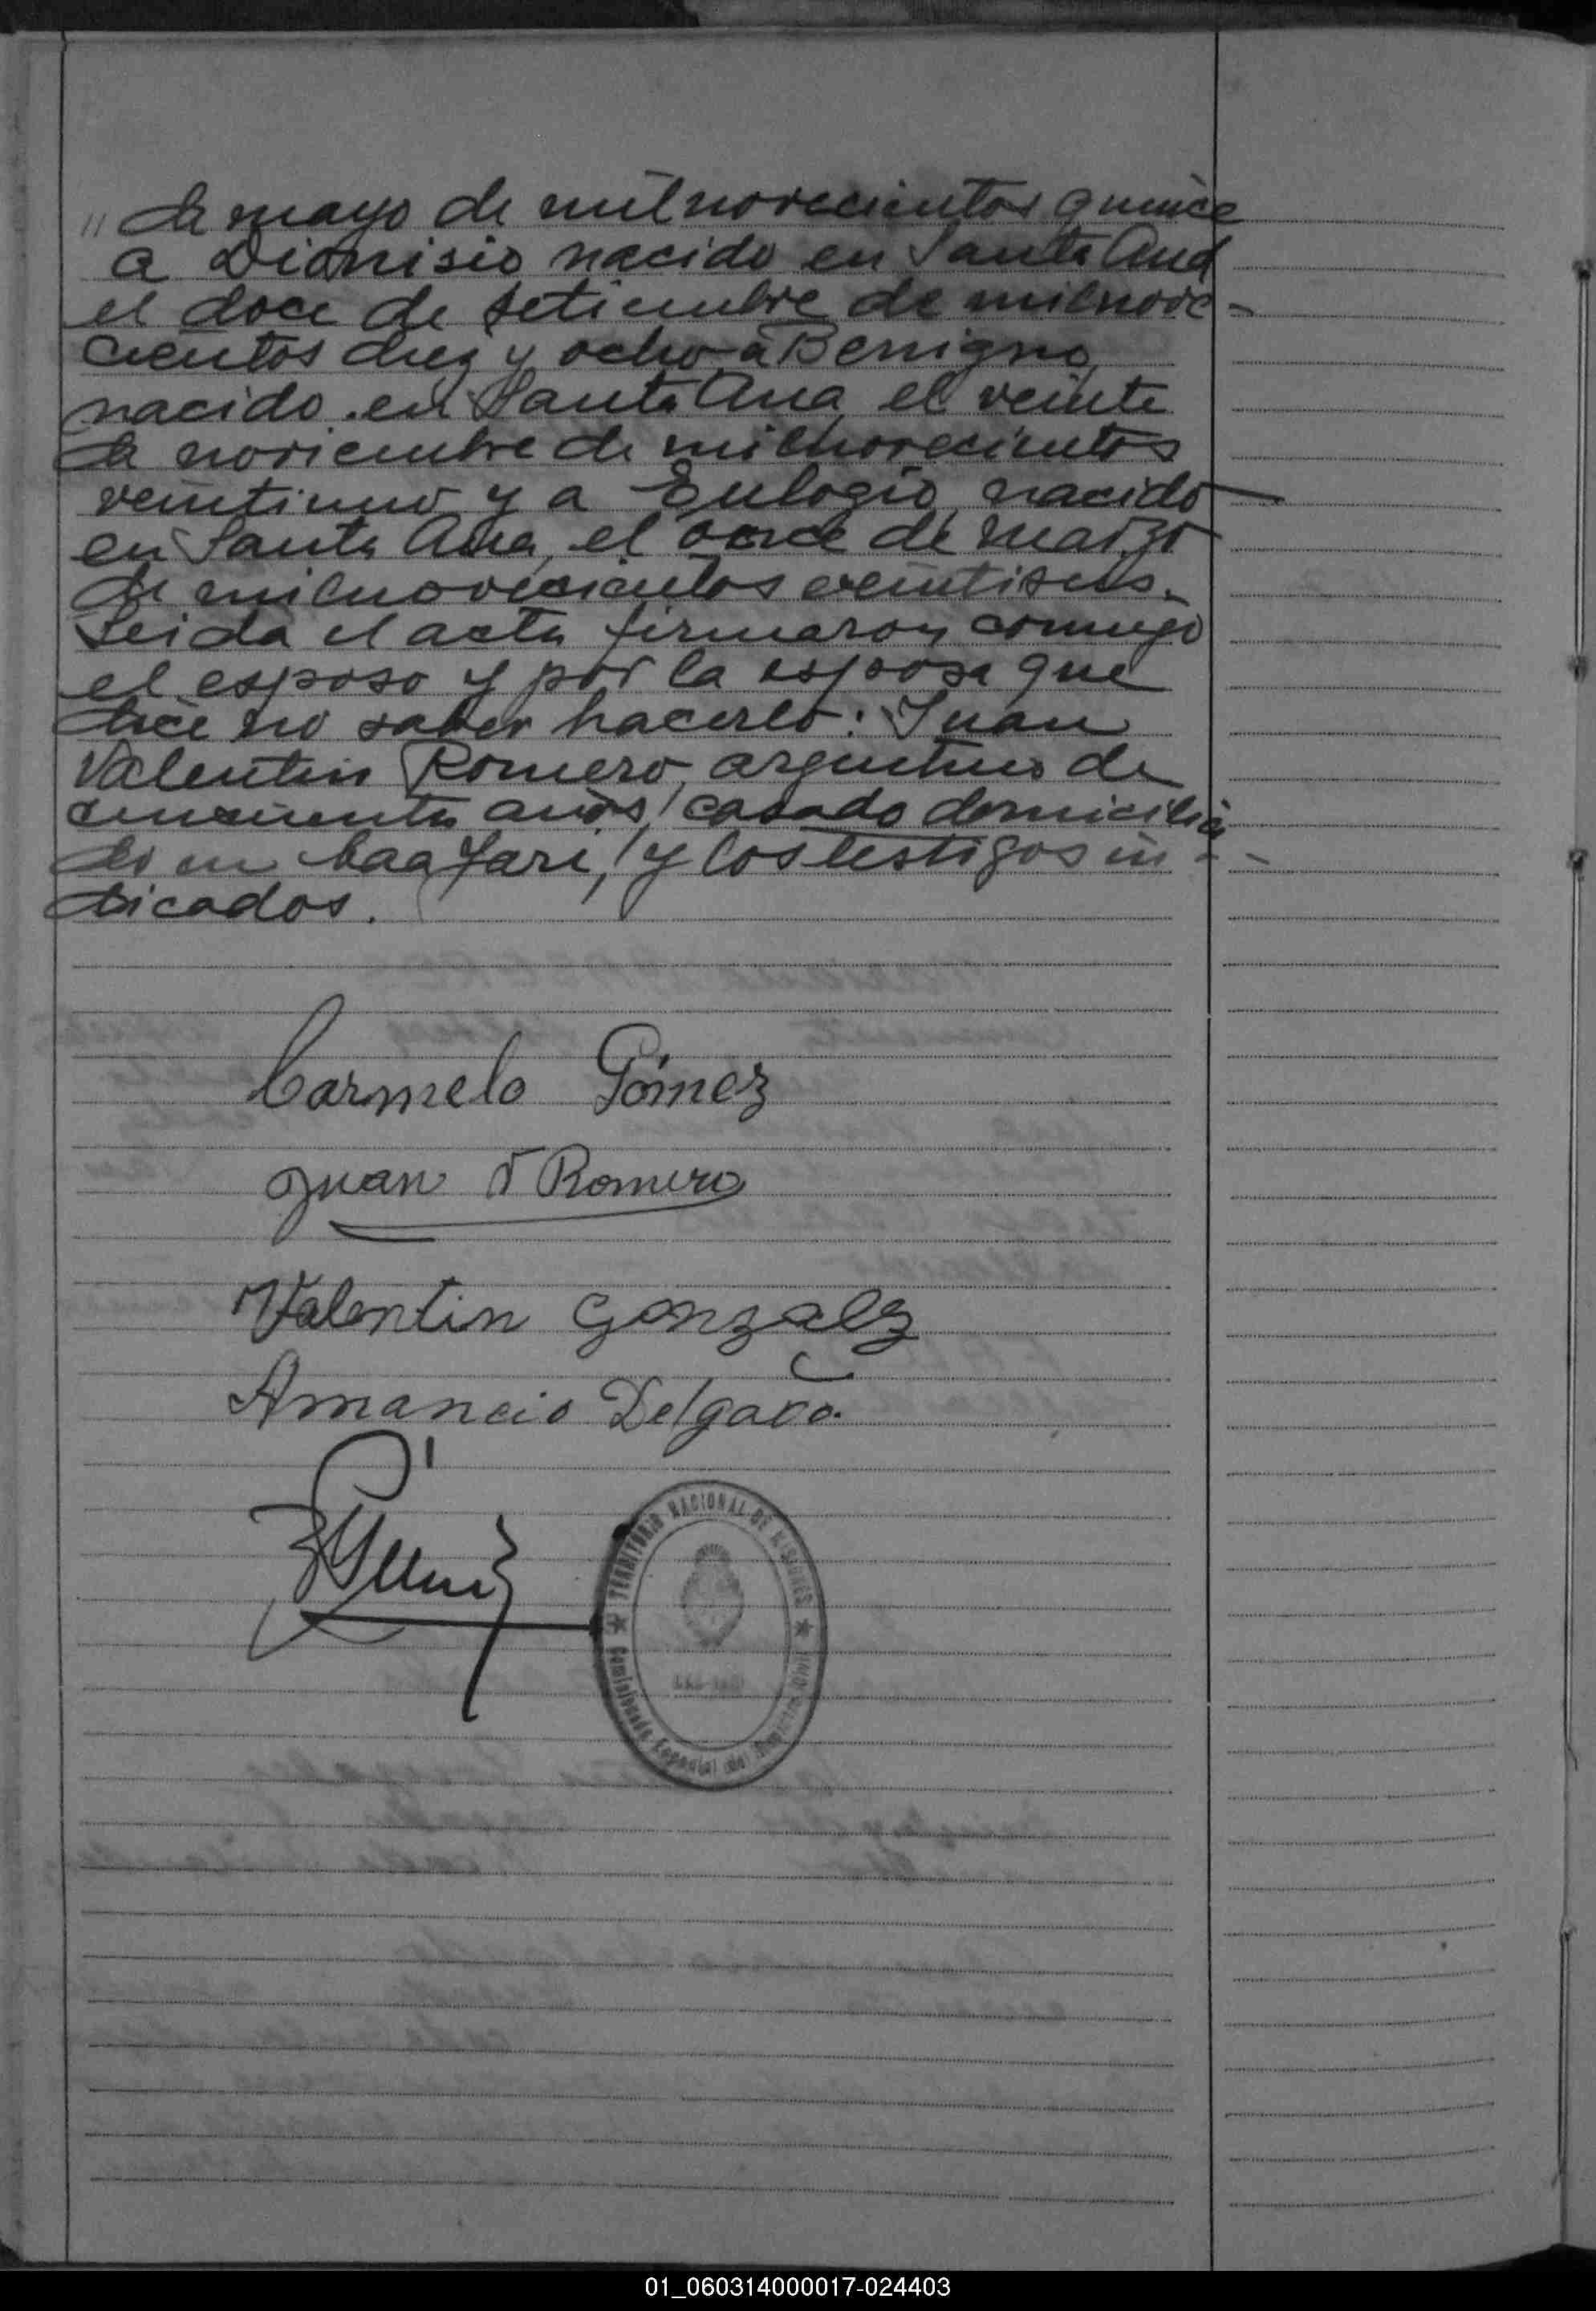 " de mayo de mil novecientos quince
a Dionisio nacido en Santa Ana
el doce de setiembre de milnove-
cientos diez y ocho a Benigno
nacido en Santa Ana el veinte
de noviembre de milnovecientos
veintiuno y a Eulogio nacido
en Santa Ana, el once de marzo
de milnovecientos veintiseis.
Leida el acta firmaron conmigo
el esposo y por la esposa que
dice no saber hacerlo: Juan
Valentin Romero, argentino de
cincuenta años, casado domicilia
do en Caa Yari, y los testigos in-
dicados.
Carmelo Gómez
Juan V Romero
Valentin Gonzalez
Amancio Delgado.
TERRITORIO NACIONAL DE MISIONES
Comisionado Especial del Registro Civil
01_060314000017-024403